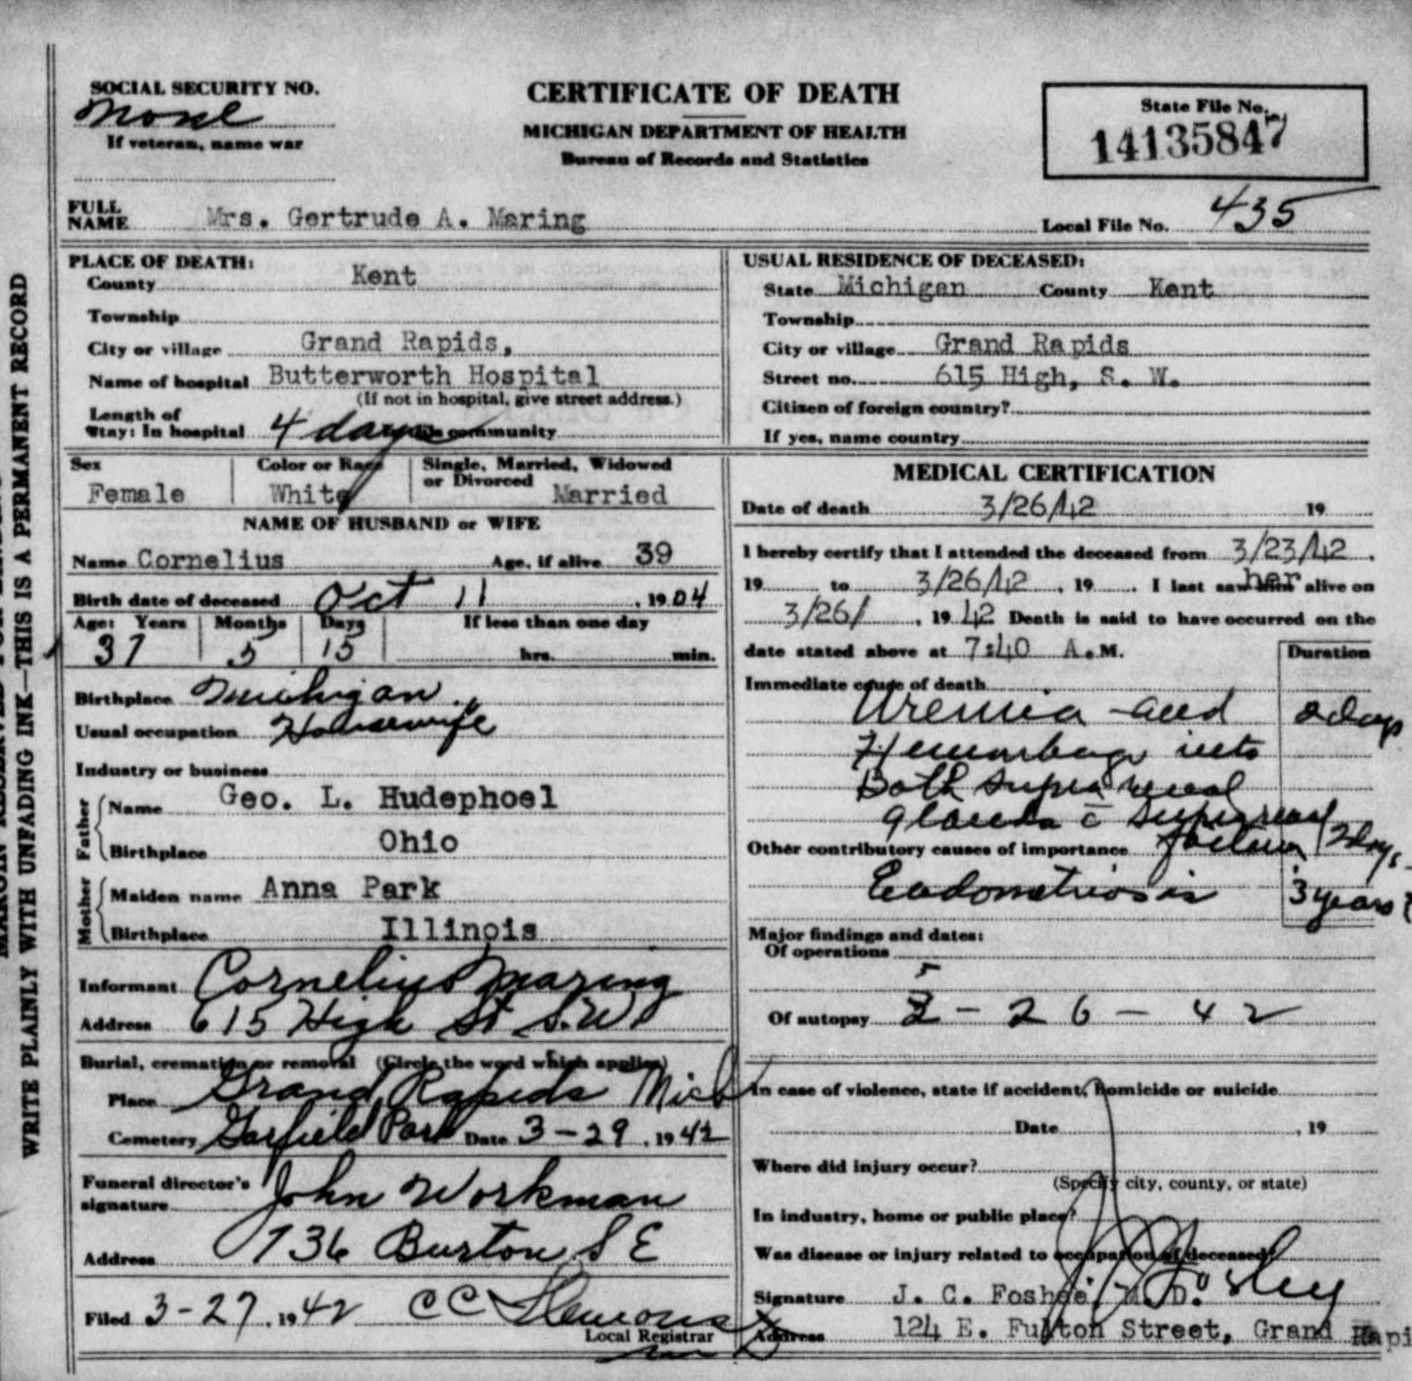 SOCIAL SECURITY NO.
None
If veteran, name war
CERTIFICATE OF DEATH
MICHIGAN DEPARTMENT OF HEALTH
Bureau of Records and Statistics
State File No.
14135847
FULL NAME Mrs. Gertrude A. Maring
Local File No. 435
PLACE OF DEATH:
County Kent
Township
City or village Grand Rapids,
Name of hospital Butterworth Hospital
(If not in hospital, give street address.)
Length of
stay: In hospital 4 days In community
USUAL RESIDENCE OF DECEASED:
State Michigan County Kent
Township
City or village Grand Rapids
Street no. 615 High, S. W.
Citizen of foreign country?
If yes, name country
Sex Female
Color or Race White
Single, Married, Widowed or Divorced Married
NAME OF HUSBAND or WIFE
Name Cornelius Age, if alive 39
Birth date of deceased Oct 11, 1904
Age: Years Months Days If less than one day
37 5 15 hrs. min.
Birthplace Michigan
Usual occupation Housewife
Industry or business
Father
Name Geo. L. Hudephoel
Birthplace Ohio
Mother
Maiden name Anna Park
Birthplace Illinois
Informant Cornelius Maring
Address 615 High St S.W
Burial, cremation or removal (Circle the word which applies)
Place Grand Rapids Mich
Cemetery Garfield Park Date 3-29, 1942
Funeral director's signature John Workman
Address 736 Burton S E
Filed 3-27, 1942 C C Slemons
Local Registrar
MEDICAL CERTIFICATION
Date of death 3/26/42 19
I hereby certify that I attended the deceased from 3/23/42.
19 to 3/26/42, 19. I last saw her alive on
3/26/, 1942 Death is said to have occurred on the
date stated above at 7:40 A.M. Duration
Immediate cause of death
Uremia and 2 days
Hemorrhage into
Both supra renal
glands c̄ suprarenal
Other contributory causes of importance failure 2 days
Endometriosis 3 years
Major findings and dates:
Of operations
Of autopsy 3-26-42
In case of violence, state if accident, homicide or suicide
Date, 19
Where did injury occur?
(Specify city, county, or state)
In industry, home or public place?
Was disease or injury related to occupation of deceased?
Signature J. C. Foshee, M. D.
Address 124 E. Fulton Street, Grand Rapi
WRITE PLAINLY WITH UNFADING INK—THIS IS A PERMANENT RECORD